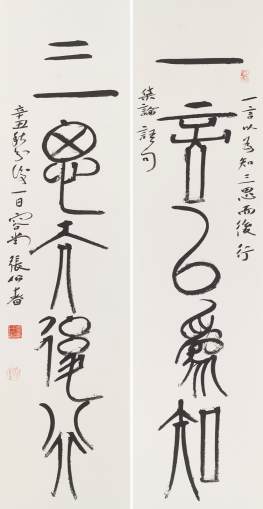 一言以為知三思而後行
一言以為知
集論語句
三思而後行
辛丑秋分後一日 張